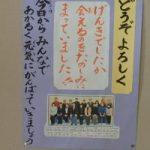 どうぞよろしく
げんきでしたか
会えるのをたのしみに
まっていました！
今日からみんなで
あかるく元気にがんばっていきましょう